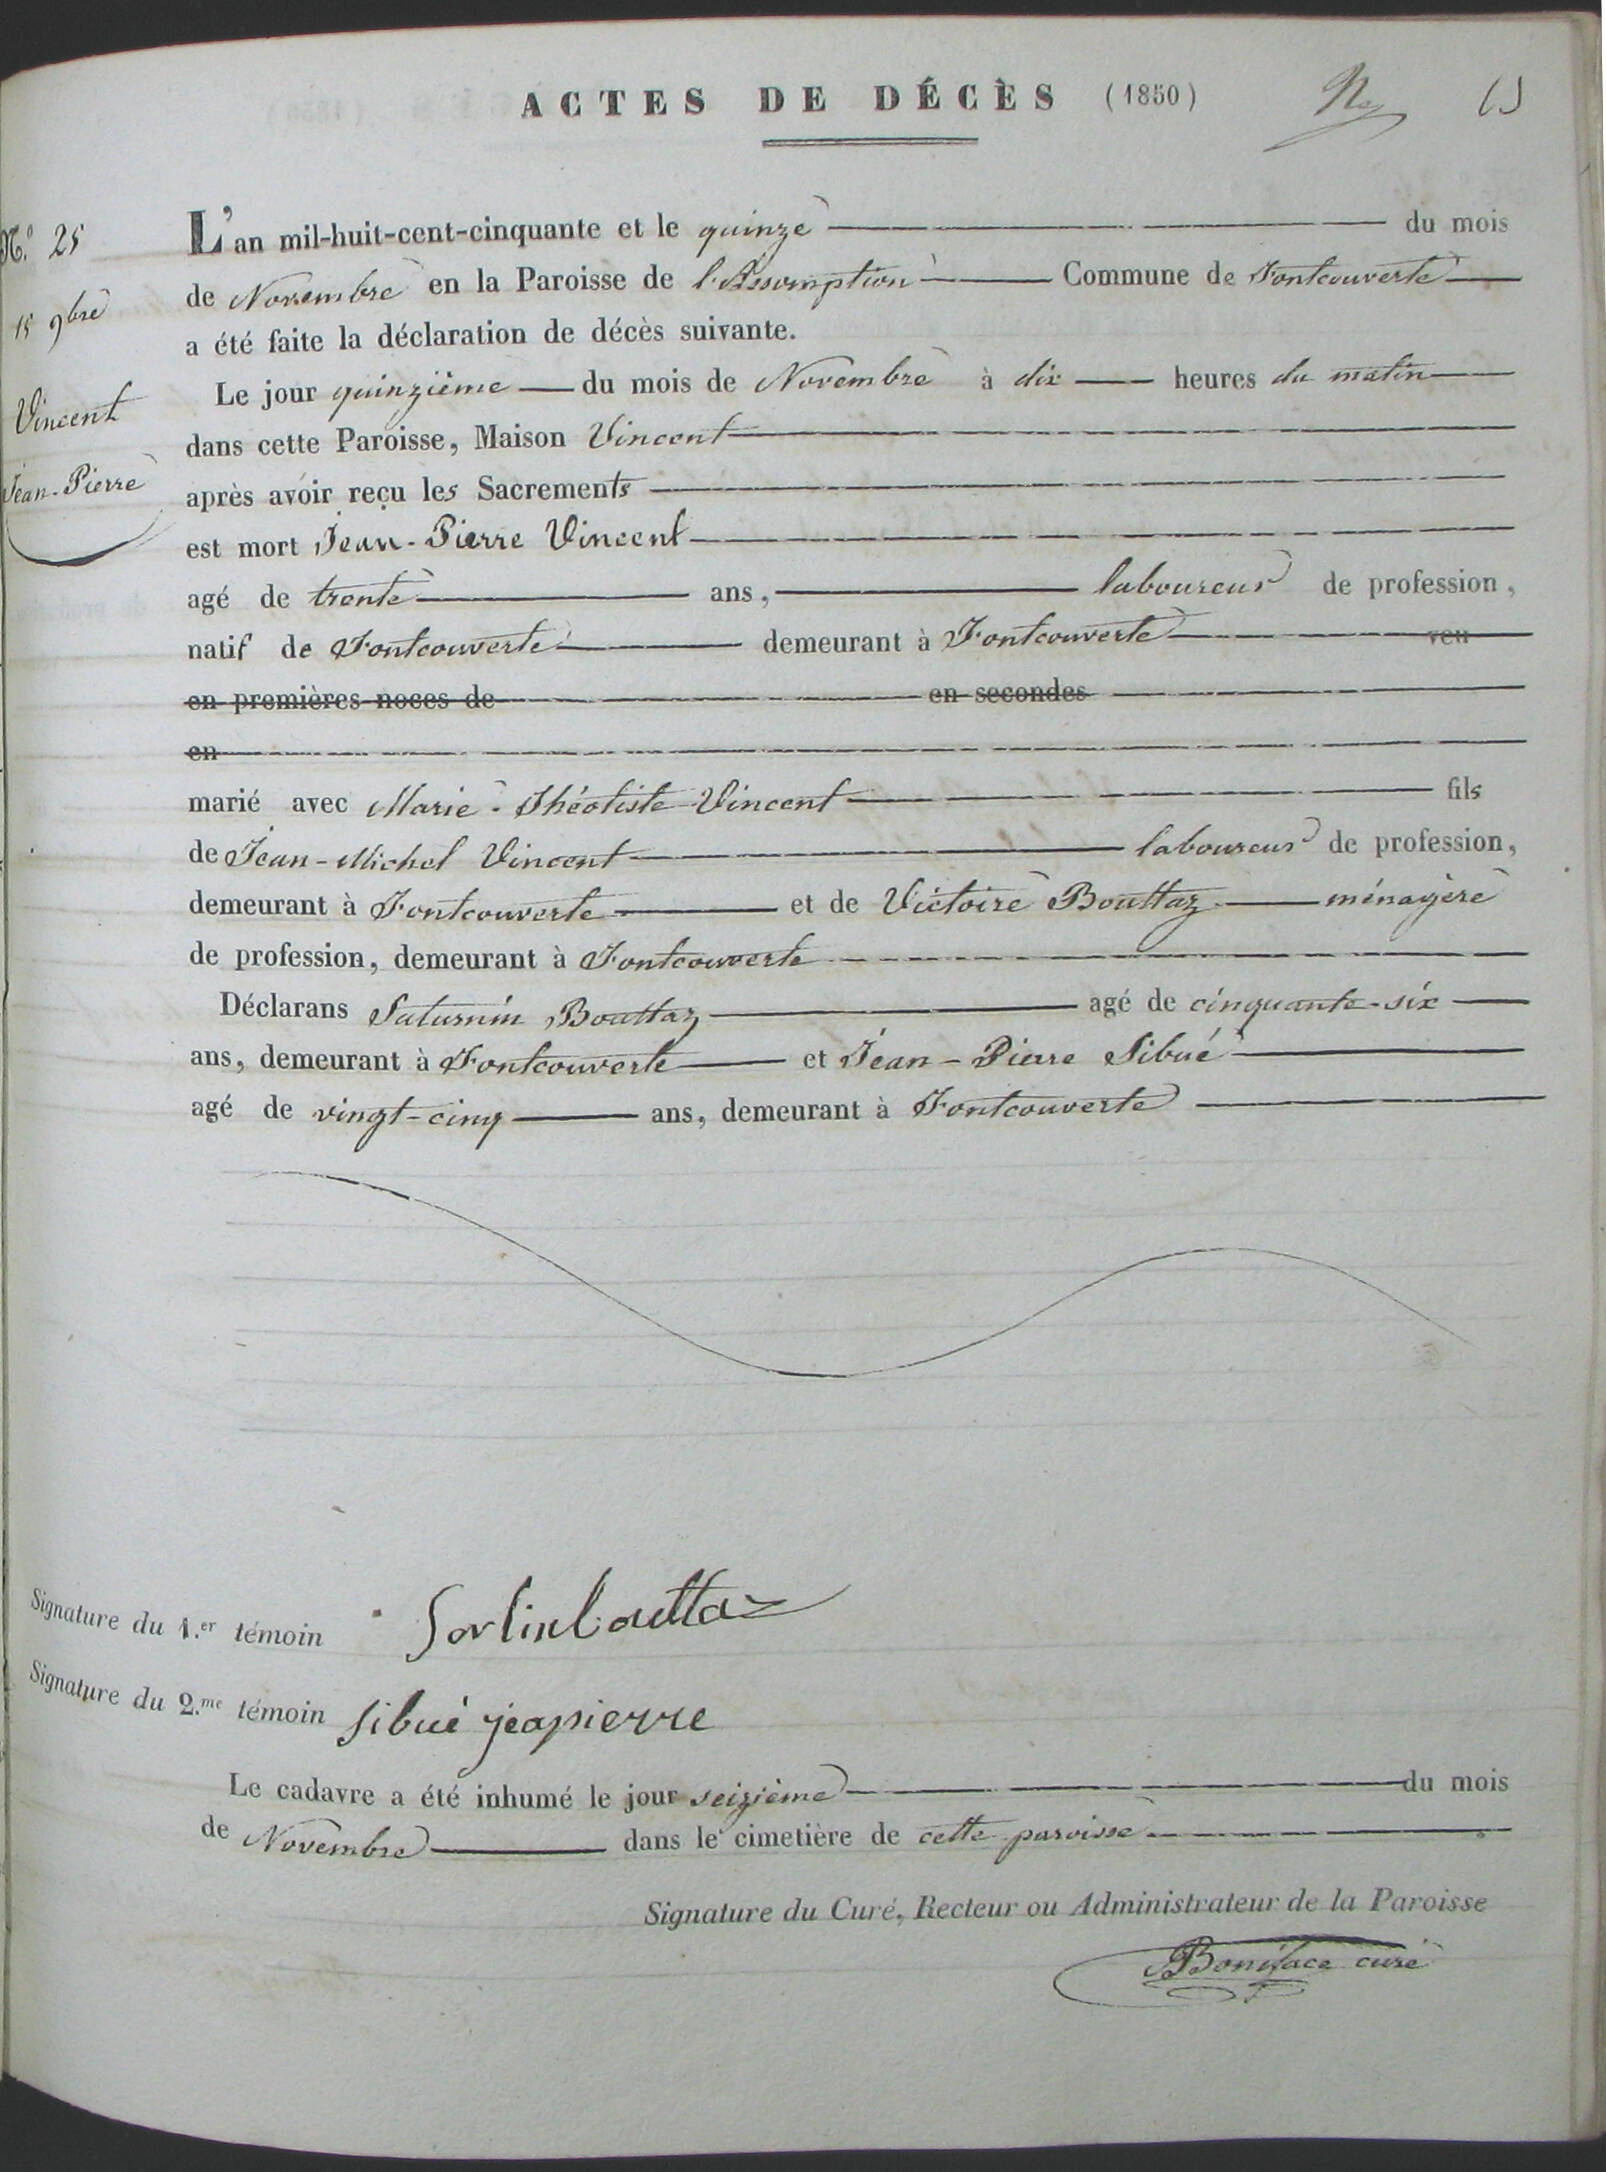 ACTES DE DÉCÈS (1850)
N.º 25
15 9bre
Vincent
Jean-Pierre
L'an mil-huit-cent-cinquante et le quinze du mois
de Novembre en la Paroisse de l'Assomption Commune de Fontcouverte
a été faite la déclaration de décès suivante.
Le jour quinzième du mois de Novembre à dix heures du matin
dans cette Paroisse, Maison Vincent
après avoir reçu les Sacrements
est mort Jean-Pierre Vincent
agé de trente ans, laboureur de profession,
natif de Fontcouverte demeurant à Fontcouverte veu
en premières noces de en secondes
en
marié avec Marie-Théotiste Vincent fils
de Jean-Michel Vincent laboureur de profession,
demeurant à Fontcouverte et de Victoire Bouttaz ménagère
de profession, demeurant à Fontcouverte
Déclarans Saturnin Bouttaz agé de cinquante-six
ans, demeurant à Fontcouverte et Jean-Pierre Sibué
agé de vingt-cinq ans, demeurant à Fontcouverte
Signature du 1.er témoin Sorlin bouttaz
Signature du 2.me témoin sibué jeapierre
Le cadavre a été inhumé le jour seizième du mois
de Novembre dans le cimetière de cette paroisse
Signature du Curé, Recteur ou Administrateur de la Paroisse
Boniface curé